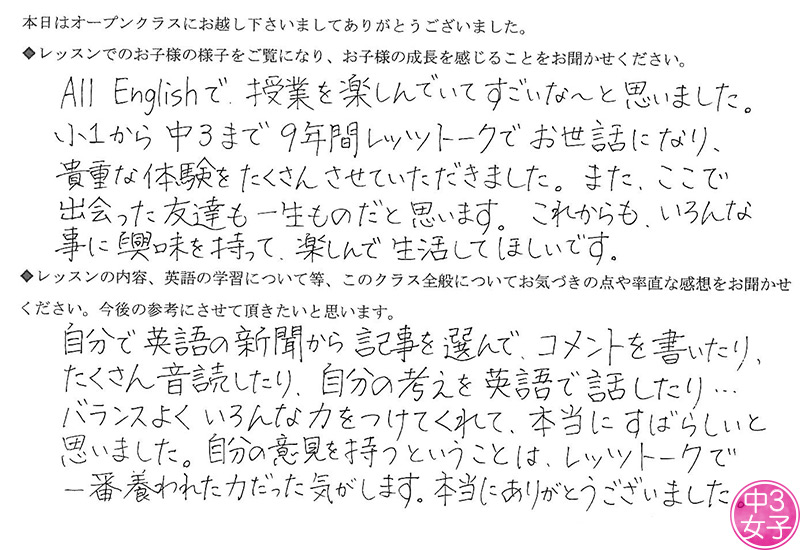 本日はオープンクラスにお越し下さいましてありがとうございました。
◆レッスンでのお子様の様子をご覧になり、お子様の成長を感じることをお聞かせください。
All Englishで、授業を楽しんでいてすごいな〜と思いました。
小1から中3まで9年間レッツトークでお世話になり、
貴重な体験をたくさんさせていただきました。また、ここで
出会った友達も一生ものだと思います。これからも、いろんな
事に興味を持って、楽しんで生活してほしいです。
◆レッスンの内容、英語の学習について等、このクラス全般についてお気づきの点や率直な感想をお聞かせ
ください。今後の参考にさせて頂きたいと思います。
自分で英語の新聞から記事を選んで、コメントを書いたり、
たくさん音読したり、自分の考えを英語で話したり…
バランスよくいろんな力をつけてくれて、本当にすばらしいと
思いました。自分の意見を持つということは、レッツトークで
一番養われた力だった気がします。本当にありがとうございました。
中3
女子